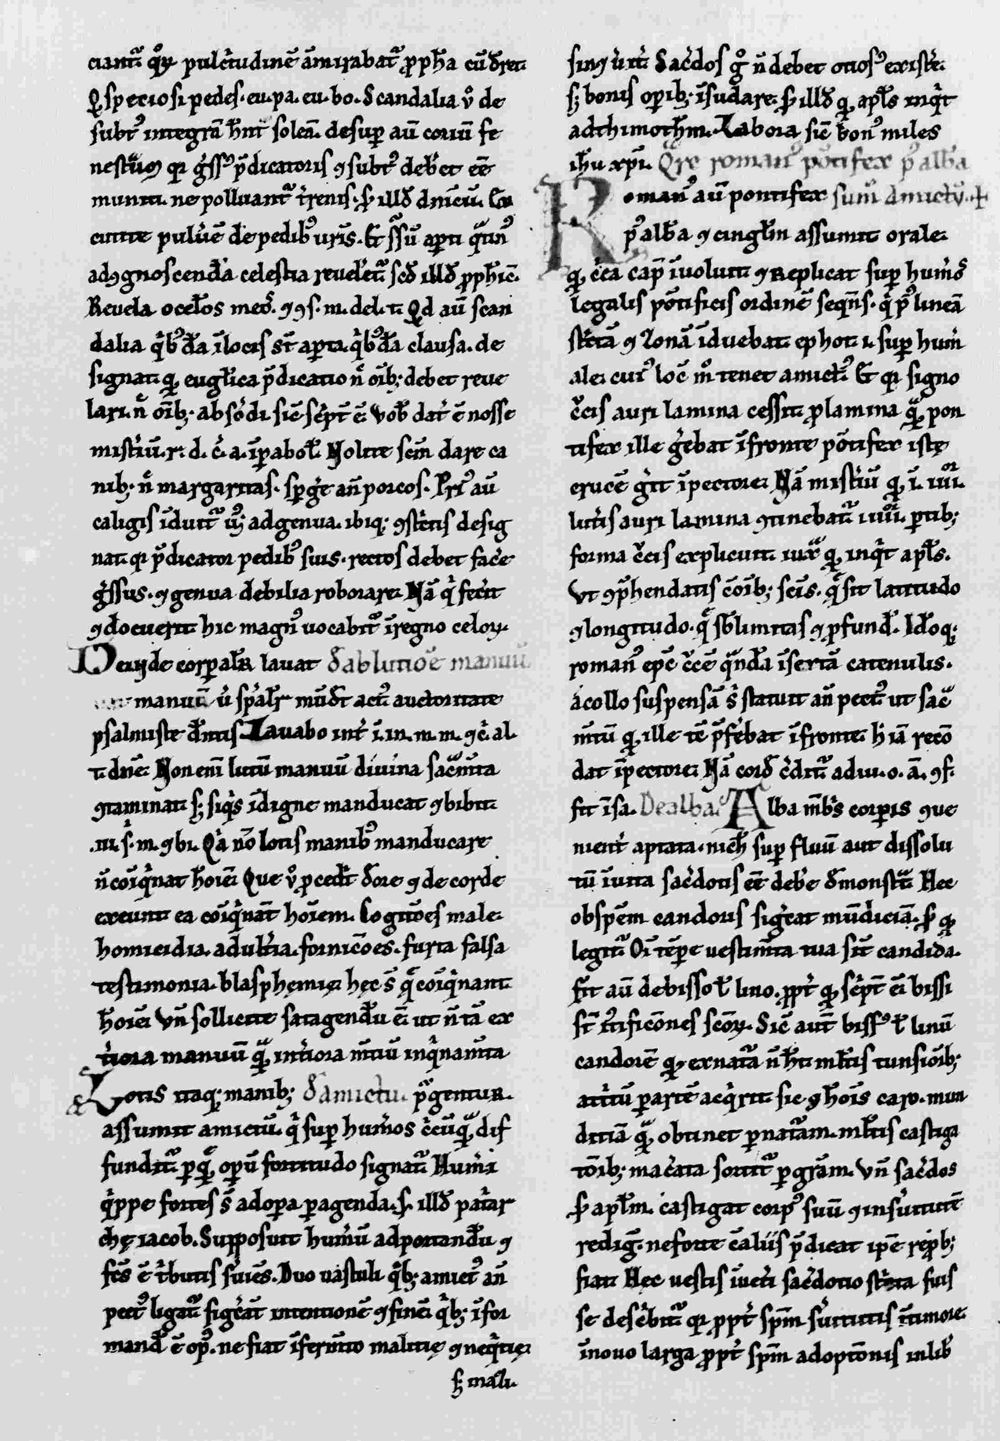 ciant᷑ qͦꝝ pulcͥtudinē ām̄irabat᷑ ꝓpħa cū dͬceͬt
Q speciosi pedes. eu. pa. eu. bo. Scandalia ꝟͦ de
subtꝰ integrā hn̄t soleā. desup̄ aū coriū fe
nestͣtū ꝙ qꝛ gͥssꝰ p̄dicatoris ꝯ subtꝰ debet eē
muniti. ne polluant᷑ tͬrenis. ẜ illđ dn̄icū. Ex
cutite puluē de pedibꝰ uris. Et ssū apti qͣtinꝰ
ad ꝯgnoscenđa celestia reuelet᷑ scđ illđ ꝓpħicē.
Reuela oculos meoſ. ꝯ ꝯſ. m. de l. t. Qđ aū scan
dalia qͥbꝰđa ī locis st̄ apta. qͥbꝰđa clausa. de
signat qꝫ euḡlica p̄dicatio nͨ oībꝫ debet reue
lari. nͨ oībꝫ absc̄odi. sic̄ sc̄pt̄ ē. Vob̄ dat̄ ē nosse
mistīū. r. d. c̄. a. ī paboł. Nolite scm̄ dare ca
nibꝫ. nͨ margaritas. sp̄gͤ an̄ porcos. Prīꝰ aū
caligis īduit᷑ usqꝫ ad genua. ibiqꝫ ꝯstͥctis desig
nat. qꝛ p̄dicator pedibꝰ suis. rectos debet facͤe
gͥssus. ꝯ genua debilia roborare. Nā qͥ fecͥit
ꝯ docuerit. hic magnꝰ uocabit᷑ ī regno celoꝝ.
Deinde corpalr̄ lauat De ablutiōe manuū
manuū ꝟ sp̄alr̄ mūđt actꝰ auctoritate
psalmiste đntis Lauabo int̄ i. in. m. m. ꝯ c̄. al.
t. dn̄e. Non enī lutū manuū diuina sac̄m̄ta
ꝯtaminat. sꝫ siqͥs īdigne manducat ꝯ bibit.
iu. s̄. m. ꝯ bi. Qͣ nō lotis manibꝰ manducare
n̄ coīqͥnat hoīē. Que ꝟ ꝓcedt̄ đ ore ꝯ de corde
exeunt ea coīqͥnāt hoīem. Cogitōes male.
homicidia. adultͥia. fornicōes. furta falsa
testimonia. blasphęmię hęc s̄ qͤ coīqͥnant
hoīē. Vn̄ sollicite satagenđu ē ut n̄ tā ex
tͥiora manuū qͣꝫ int̄iora m̄tiū inqͥnam̄ta
Lotis itaqꝫ manibꝫ De amictu. p̄gentur.
assumit amictū. qͥ sup̄ humͦos cͥcūqͣꝫ dif
fundit᷑. p qͤꝫ opū fortitudo signat᷑. Humͥi
qͥppe fortes s̄ ad opa pagenda. ẜ. illđ patͥar
chę iacob. Supposuit humͦū ad portanđu ꝯ
fcs̄ ē tͥbutis suiēs. Duo uasculi qͥbꝫ amictꝰ an̄
pectꝰ ligat᷑ sigͥcāt intentionē ꝯ finē qͥbꝫ īfor
mand̄ ē opꝰ. ne fiat ī fermto malitię ꝯ neqͥtię.
sꝫ mali.
sinc̄itt. Sac̄dos g̊ n̄ debet otiosꝰ existe.
sꝫ bonis opibꝫ īsudare. ẜ illđ qꝫ apłs inqͥt
ad thimothm̄. Labora sic̄ bonꝰ miles
ihu xp̄i. Qͣre romanꝰ pōtifex p̄ albā
Romanꝰ aū pontifex sum̄ amictū.
p̄ albā ꝯ cingłm assumit orale.
qͣ cͥca cap̄ īuoluit ꝯ replicat sup̄ humͦos
legalis pōtificis ordinē seqns̄. qͥ p̄ lineā
stͥctā ꝯ zonā īduebat ephot. i. sup̄ hum̄
ale. cuiꝰ locͫ m̊ tenet amictꝰ. Et qꝛ signo
cͥcis auri lamina cessit. ꝓ lamina qͣꝫ pon
tifex ille gͤebat ī fronte pōtifex istę
crucē gͥit ī pectore. Nā mistīū qꝫ ī. iiiior
litͥis auri lamina ꝯtinebat᷑. iiiior ptibꝫ
forma cͥcis explicuit. iuxͣ qꝫ inqͥt apłs.
Vt ꝯp̄hendatis cū oībꝫ scīs. qͤ sit latitudo
ꝯ longitudo. qͤ sb̄limitas ꝯ ꝓfund̄. Iđoqꝫ
romanꝰ epc̄ cͥcē qͣnđa īsertā catenulis.
a collo suspensā s̄ statuit an̄ pectꝰ ut sac̄
m̄tū qꝫ ille tc̄ p̄febat ī fronte. h iā recō
dat ī pectore. Nā corđ cͥdit᷑ ad iu. o. ā. ꝯf.
fit ī sa. De alba. Alba mb̄s corpis ꝯue
nient̄ aptata. nichͥł sup̄ fluū aut dissolu
tū ī uita sac̄dotis eē debͤe đmonstͣt. Hec
ob spēm candoris sigͥcat mūdiciā. ẜ qꝫ
legit᷑. Oī tēpͤe uestim̄ta tua sīt candida.
fit aū de bisso ł lino. ꝓpt̄ qꝫ sc̄pt̄ ē. bissi
st̄ iustificōnes scōꝝ. Sic̄ aut̄ bissꝰ ł linū
candorē qꝫ ex nata n̄ ht mltis tunsiōibꝫ
attitū p artē acqͥrit sic ꝯ hoīs caro. mun
ditiā qͣꝫ obtinet p natam̄. mltis castiga
tōibꝫ macͥata sortit᷑ p gr̄am. Vn̄ sac̄dos
ẜ aplm̄. castigat corpꝰ suū ꝯ in sͥuitutē
redig̃. ne forte c̄ aliis p̄dicat. ipe reꝓbꝫ
fiat. Hec uestis ī uetͥi sac̄dotio stͥcta fuis
se desc̄bit᷑. qꝛ ꝓpt̄ spm̄ sͥuitutis ī timore.
ī nouo larga ꝓpt̄ spm̄ adoptōnis in lib̄